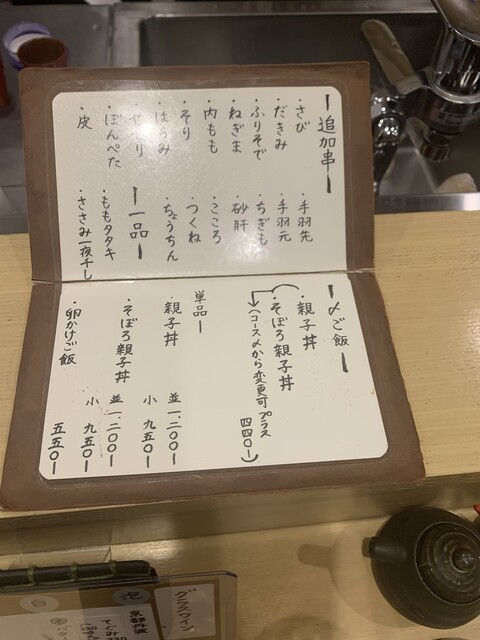 ー追加串ー
・さび
・だきみ
・ふりそで
・ねぎま
・内もも
・そり
・はらみ
・せせり
・ぼんぺた
・皮
・手羽先
・手羽元
・ちぎも
・砂肝
・こころ
・つくね
・ちょうちん
ー一品ー
・ももタタキ
・ささみ一夜干し
ー〆ご飯ー
・親子丼
・そぼろ親子丼
(コース〆から変更可プラス四四〇ー)
単品ー
・親子丼
並一.二〇〇ー
小 九五〇ー
・そぼろ親子丼
並一.二〇〇ー
小 九五〇ー
・卵かけご飯
五五〇ー
グラスワイン
泡
京都丹波
白